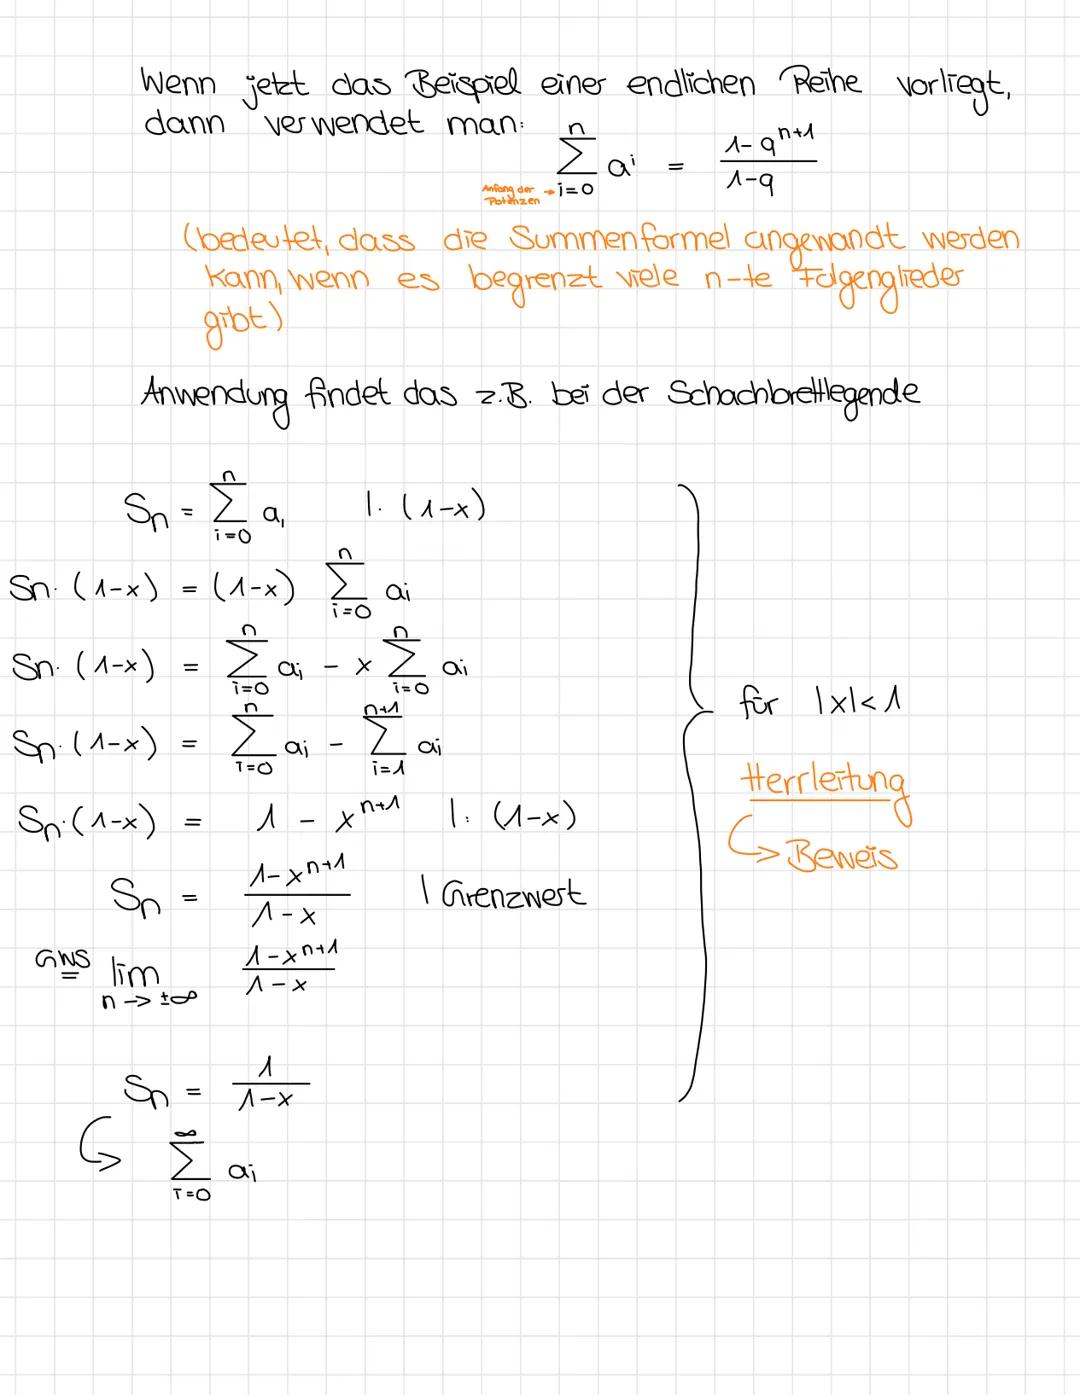 Wenn jetzt das Beispiel einer endlichen Reihe vorliegt,
dann verwendet man: \sum_{i=0}^{n} a^i = \frac{1-q^{n+1}}{1-q}
Anfang der Potenzen → i=0
(bedeutet, dass die Summenformel angewandt werden
kann, wenn es begrenzt viele n-te Folgenglieder
gibt)
Anwendung findet das z.B. bei der Schachbrettlegende
S_n = \sum_{i=0}^{n} a_i |· (1-x)
S_n · (1-x) = (1-x) \sum_{i=0}^{n} a_i
S_n · (1-x) = \sum_{i=0}^{n} a_i - x \sum_{i=0}^{n} a_i
S_n · (1-x) = \sum_{i=0}^{n} a_i - \sum_{i=1}^{n+1} a_i
S_n · (1-x) = 1 - x^{n+1} |: (1-x)
S_n = \frac{1-x^{n+1}}{1-x} | Grenzwert
GWS \lim_{n → ±∞} \frac{1-x^{n+1}}{1-x}
S_n = \frac{1}{1-x}
↪ \sum_{i=0}^{∞} a_i
für |x|<1
Herrleitung
↪ Beweis